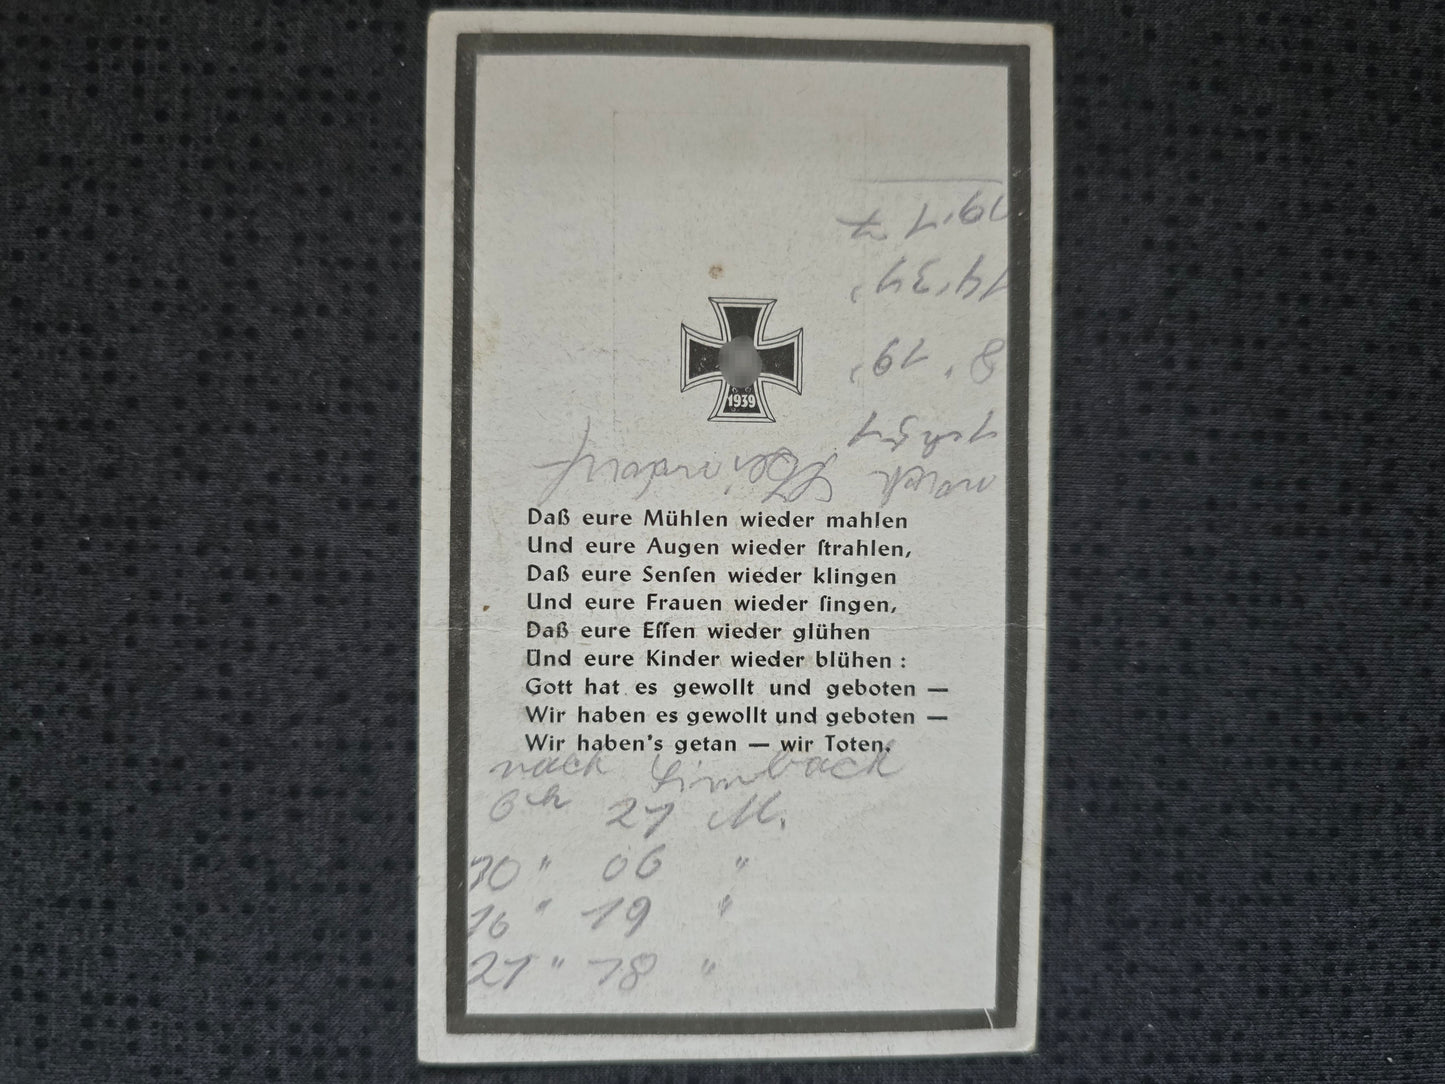 1939
Daß eure Mühlen wieder mahlen
Und eure Augen wieder ſtrahlen,
Daß eure Senſen wieder klingen
Und eure Frauen wieder ſingen,
Daß eure Eſſen wieder glühen
Und eure Kinder wieder blühen :
Gott hat es gewollt und geboten —
Wir haben es gewollt und geboten —
Wir haben's getan — wir Toten.
nach Limbach
6 h 21 M.
10 " 06 "
16 " 19 "
21 " 18 "
nach
8 " 19 "